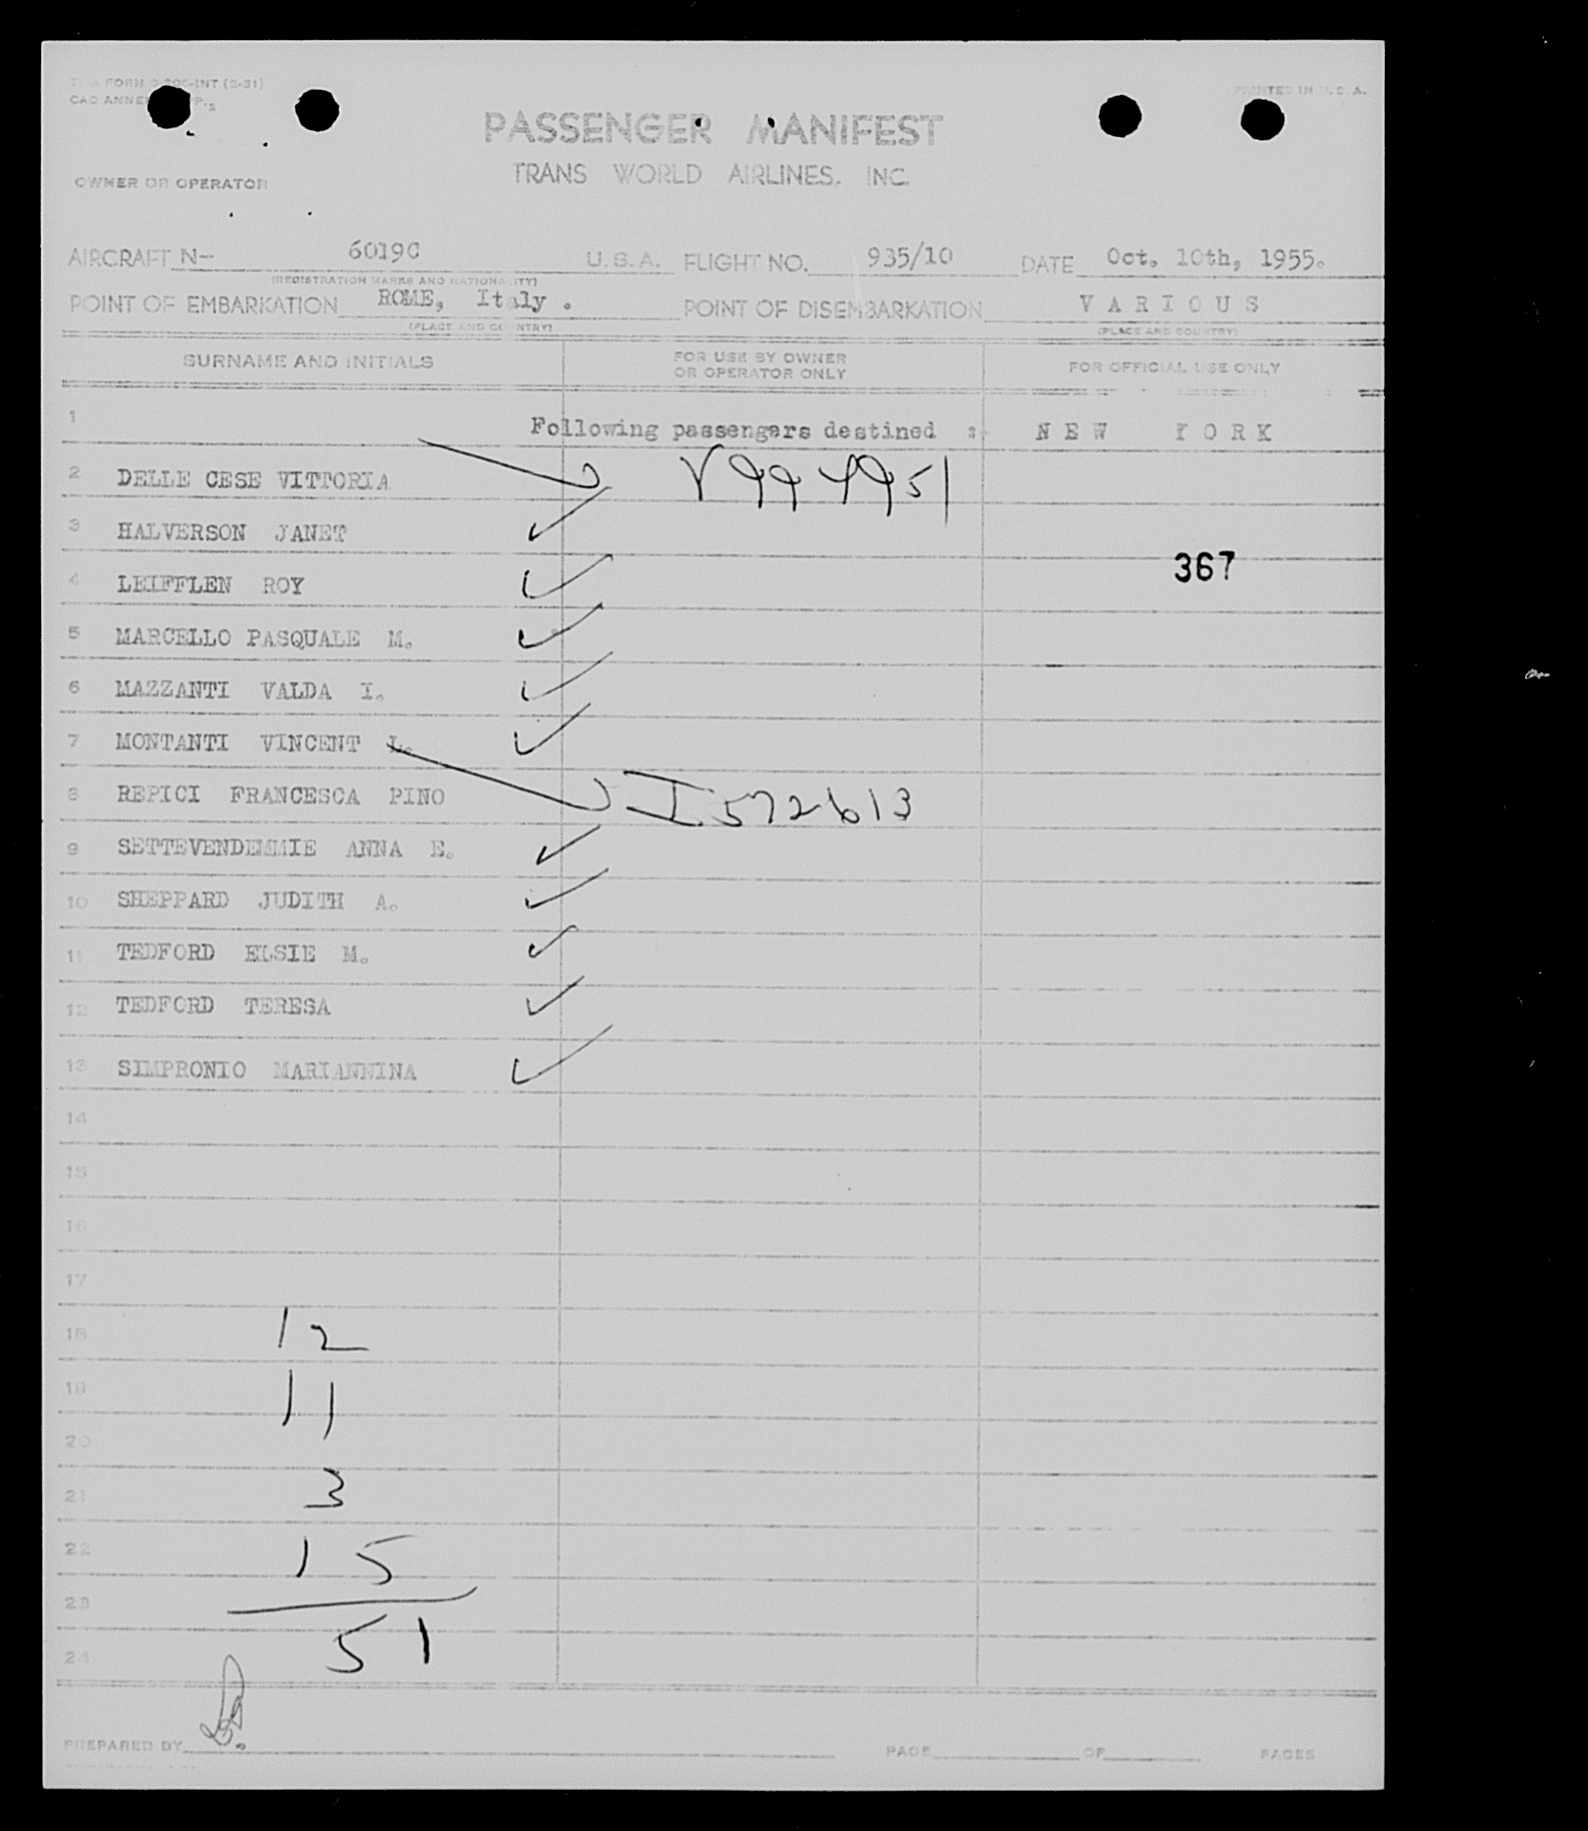 FORM
CAO ANNE
PRINTED IN U.S.A.
PASSENGER MANIFEST
TRANS WORLD AIRLINES, INC.
OWNER OR OPERATOR
AIRCRAFT N- 6019C U.S.A. FLIGHT NO. 935/10 DATE Oct, 10th, 1955.
(REGISTRATION MARKS AND NATIONALITY)
POINT OF EMBARKATION ROME, Italy . POINT OF DISEMBARKATION VARIOUS
(PLACE AND COUNTRY) (PLACE AND COUNTRY)
SURNAME AND INITIALS FOR USE BY OWNER OR OPERATOR ONLY FOR OFFICIAL USE ONLY
1 Following passengers destined :- NEW YORK
2 DELLE CESE VITTORIA V994951
3 HALVERSON JANET
367
4 LEIFFLEN ROY
5 MARCELLO PASQUALE M.
6 MAZZANTI VALDA I.
7 MONTANTI VINCENT L.
8 REPICI FRANCESCA PINO I572613
9 SETTEVENDEMMIE ANNA E.
10 SHEPPARD JUDITH A.
11 TEDFORD ELSIE M.
12 TEDFORD TERESA
13 SIMPRONIO MARIANNINA
14
15
16
17
18 12
19 11
20
21 3
22 15
23
24 51
PREPARED BY PAGE OF PAGES